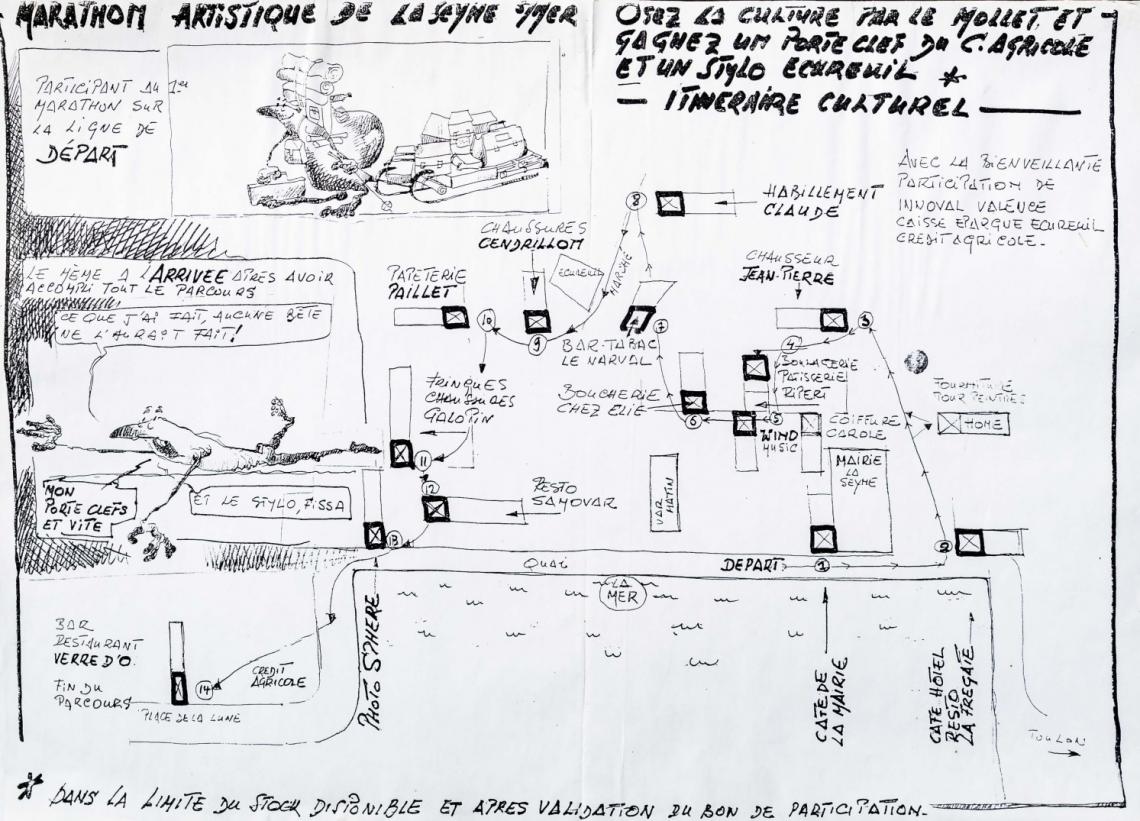 MARATHON ARTISTIQUE DE LA SEYNE S/MER
OSEZ LA CULTURE PAR LE MOLLET ET
GAGNEZ UN PORTE CLEF DU C. AGRICOLE
ET UN STYLO ECUREUIL *
— ITINERAIRE CULTUREL —
PARTICIPANT AU 1er
MARATHON SUR
LA LIGNE DE
DÉPART
AVEC LA BIENVEILLANTE
PARTICIPATION DE
INNOVAL VALENCE
CAISSE EPARGNE ECUREUIL
CREDIT AGRICOLE.
LE MÊME A L'ARRIVEE APRÈS AVOIR
ACCOMPLI TOUT LE PARCOURS
CE QUE J'AI FAIT, AUCUNE BÊTE
NE L'AURAIT FAIT!
MON
PORTE CLEFS
ET VITE
ET LE STYLO, FISSA
8
HABILLEMENT
CLAUDE
CHAUSSURES
CENDRILLON
PAPETERIE
PAILLET
ECUREUIL
MARCHÉ
CHAUSSEUR
JEAN-PIERRE
10
9
7
3
4
BAR-TABAC
LE NARVAL
BOULAGERIE
PATISSERIE
RIPERT
FRINGUES
CHAUSSURES
GALOPIN
BOUCHERIE
CHEZ ELIE
6
5
WIND
MUSIC
COIFFURE
CAROLE
FOURNITURE
POUR PEINTRES
HOME
11
12
RESTO
SAMOVAR
VAR MATIN
MAIRIE
LA
SEYNE
13
2
QUAI
DEPART
1
LA
MER
BAR
RESTAURANT
VERRE D'O.
FIN DU
PARCOURS
14
CREDIT
AGRICOLE
PLACE DE LA LUNE
PHOTO SPHERE
CAFE DE
LA MAIRIE
CAFE HÔTEL
RESTO
LA FREGATE
TOULON
* DANS LA LIMITE DU STOCK DISPONIBLE ET APRES VALIDATION DU BON DE PARTICIPATION.